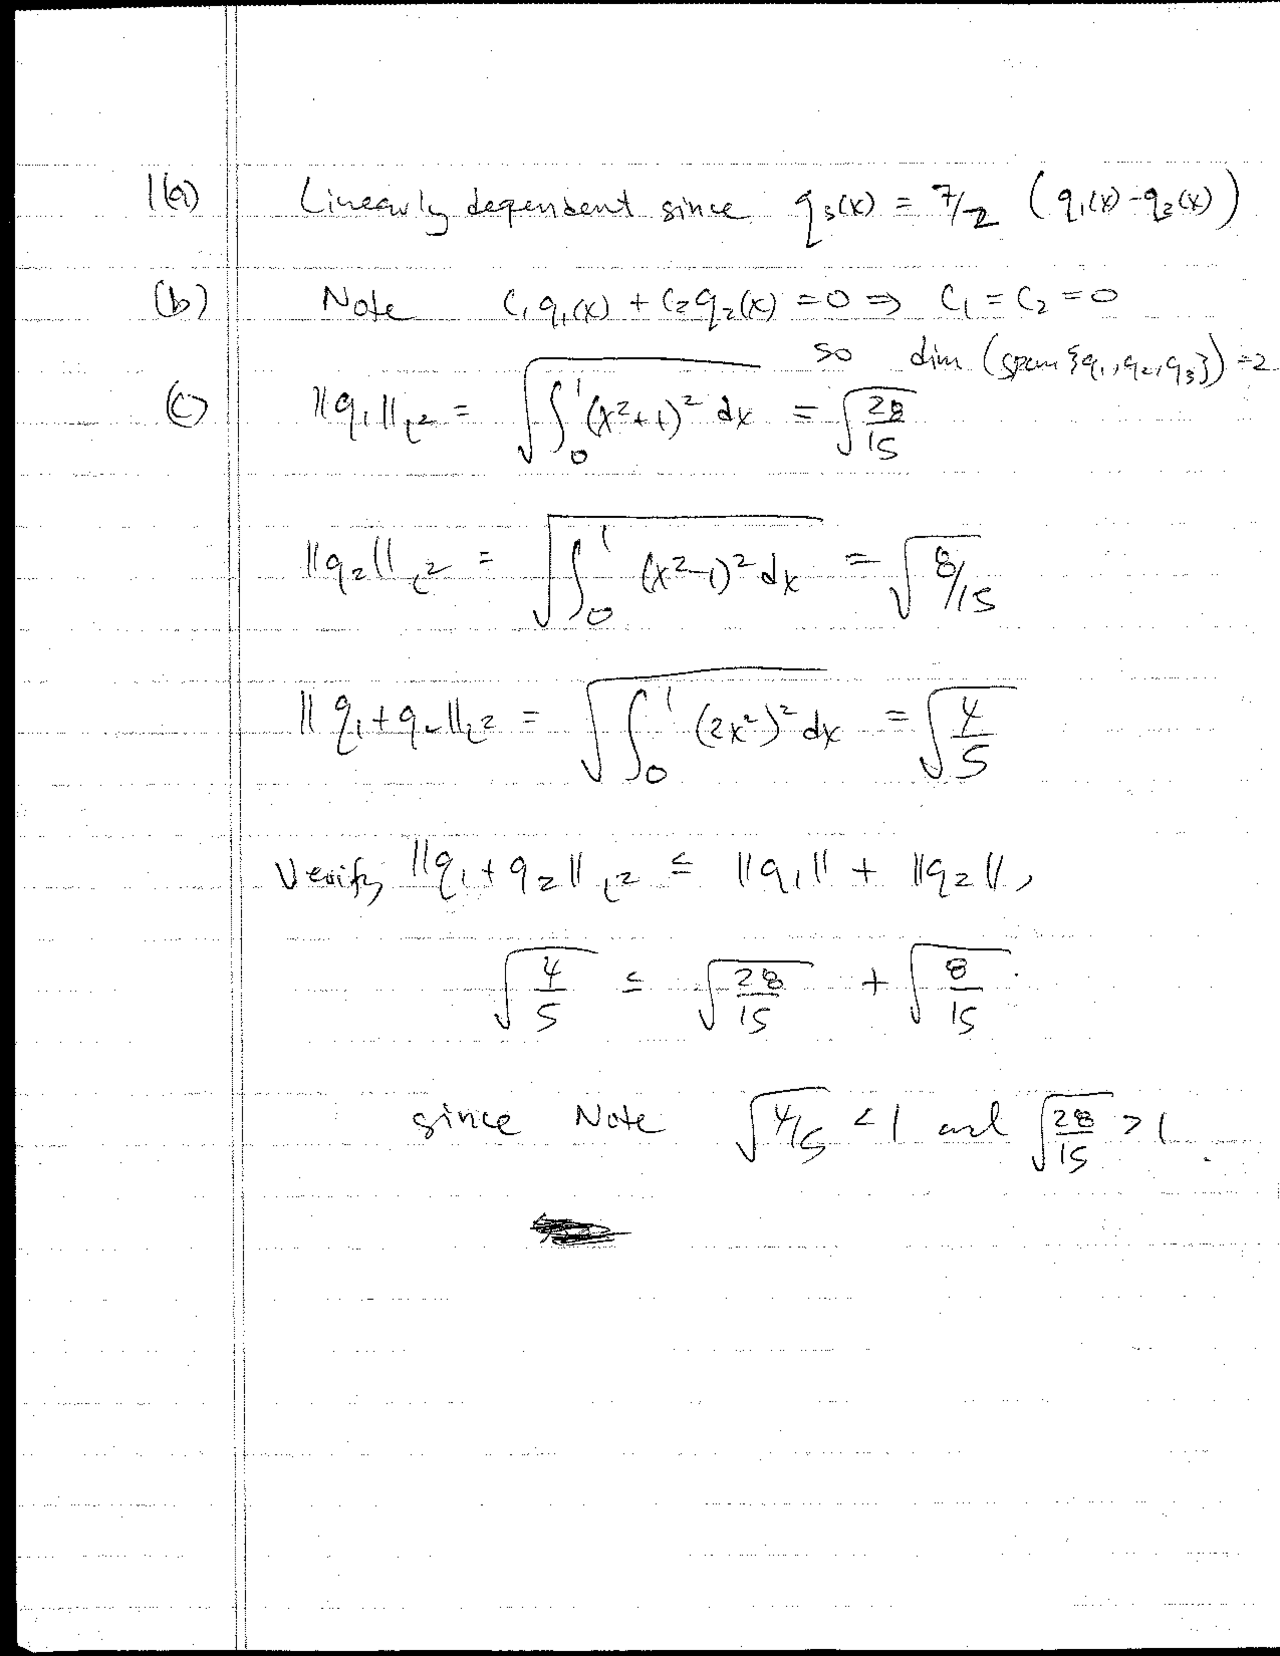 1(a) Linearly dependent since q₃(x) = 7/2 (q₁(x)-q₂(x))
(b) Note c₁q₁(x) + c₂q₂(x) = 0 ⇒ c₁ = c₂ = 0
so dim (span {q₁, q₂, q₃}) = 2
(c) ||q₁||_L² = √(∫₀¹ (x²+1)² dx) = √(28/15)
||q₂||_L² = √(∫₀¹ (x²-1)² dx) = √(8/15)
||q₁+q₂||_L² = √(∫₀¹ (2x²)² dx) = √(4/5)
Verify ||q₁+q₂||_L² ≤ ||q₁|| + ||q₂||,
√(4/5) ≤ √(28/15) + √(8/15).
since Note √(4/5) < 1 and √(28/15) > 1.